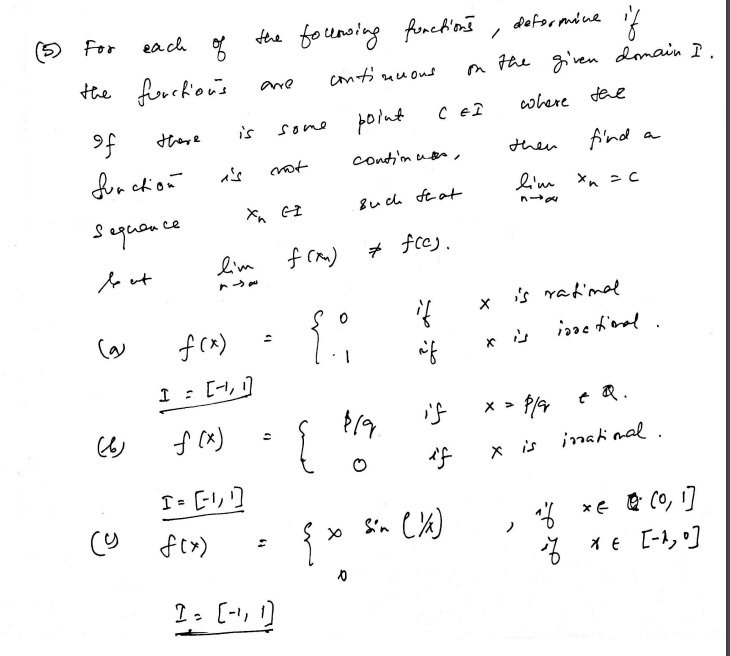 (5) For each of the following functions, determine if
the functions are continuous on the given domain I.
If there is some point c ∈ I where the
function is not continuous, then find a
sequence xₙ ∈ I such that lim n→∞ xₙ = c
but lim n→∞ f(xₙ) ≠ f(c).
(a) f(x) = { 0 if x is rational
1 if x is irrational.
I = [-1, 1]
(b) f(x) = { p/q if x = p/q ∈ Q.
0 if x is irrational.
I = [-1, 1]
(c) f(x) = { x sin (1/x), if x ∈ (0, 1]
0 if x ∈ [-1, 0]
I = [-1, 1]